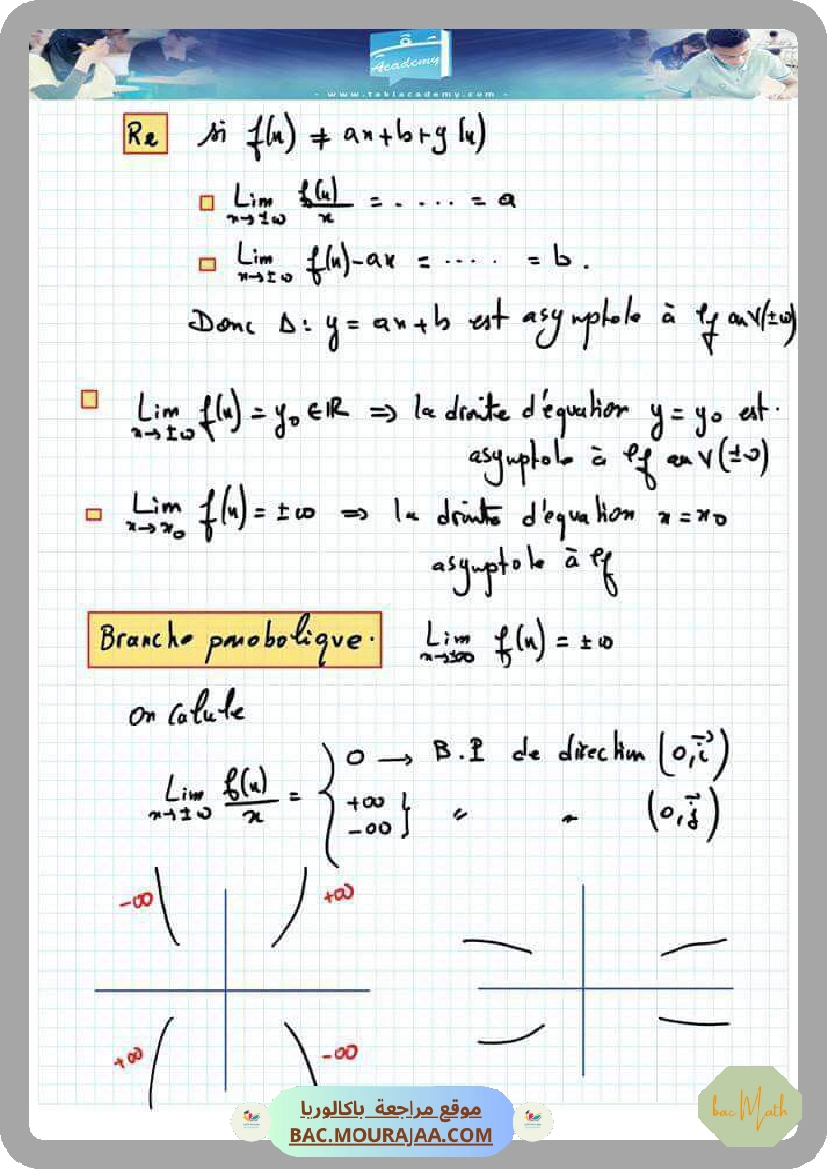 Academy
- www.takiacademy.com -
Re si f(x) ≠ ax+b+g(x)
Lim x→±∞ f(x)/x = ..... = a
Lim x→±∞ f(x)-ax = ..... = b.
Donc Δ: y = ax+b est asymptote à ℓf au V(±∞)
Lim x→±∞ f(x) = y₀ ∈ ℝ ⇒ la droite d'équation y = y₀ est.
asymptote à ℓf au V(±∞)
Lim x→x₀ f(x) = ±∞ ⇒ la droite d'équation x = x₀
asymptote à ℓf
Branche parabolique. Lim x→±∞ f(x) = ±∞
On calcule
Lim x→±∞ f(x)/x = { 0 → B.P de direction (0,i⃗)
+∞
-∞ } " " (0,j⃗)
-∞ +∞
+∞ -∞
موقع مراجعة باكالوريا
BAC.MOURAJAA.COM
bac Math